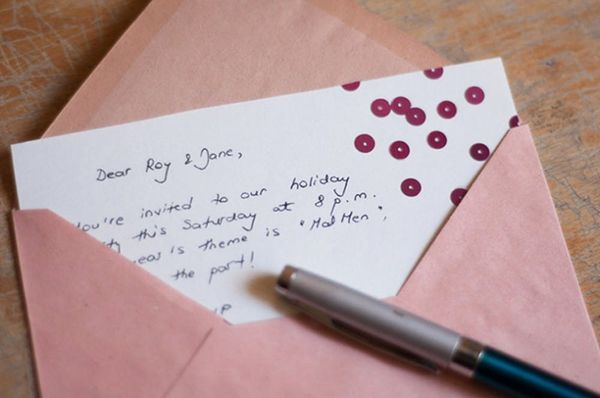 Dear Roy & Jane,
you're invited to our holiday
this Saturday at 8 p.m.
year's theme is "Mad Men",
the part!